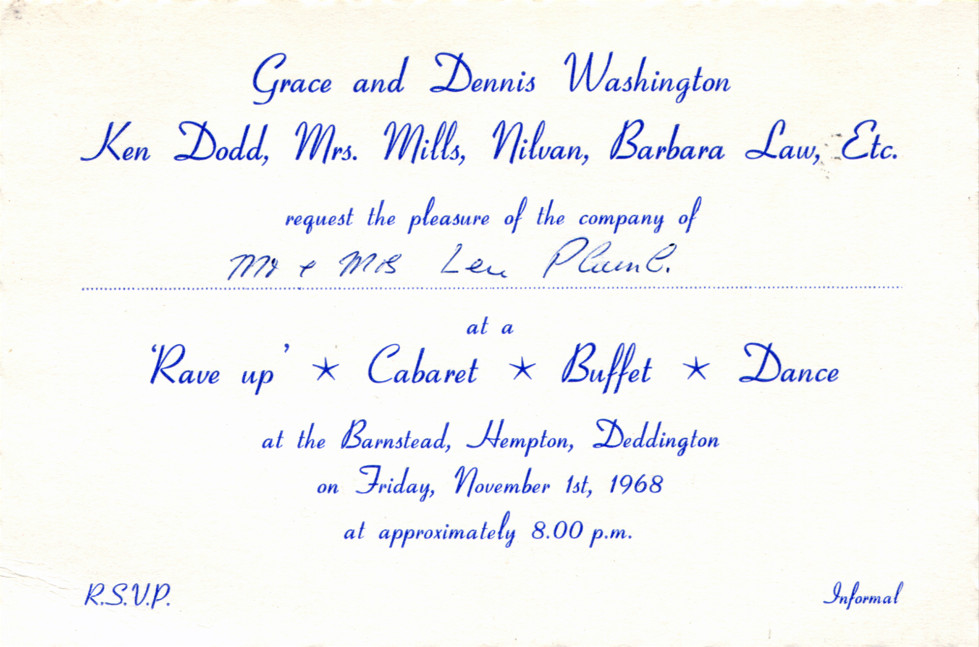 Grace and Dennis Washington
Ken Dodd, Mrs. Mills, Nilvan, Barbara Law, Etc.
request the pleasure of the company of
Mr & Mrs Len Plumb.
at a
'Rave up' ★ Cabaret ★ Buffet ★ Dance
at the Barnstead, Hempton, Deddington
on Friday, November 1st, 1968
at approximately 8.00 p.m.
R.S.V.P.
Informal